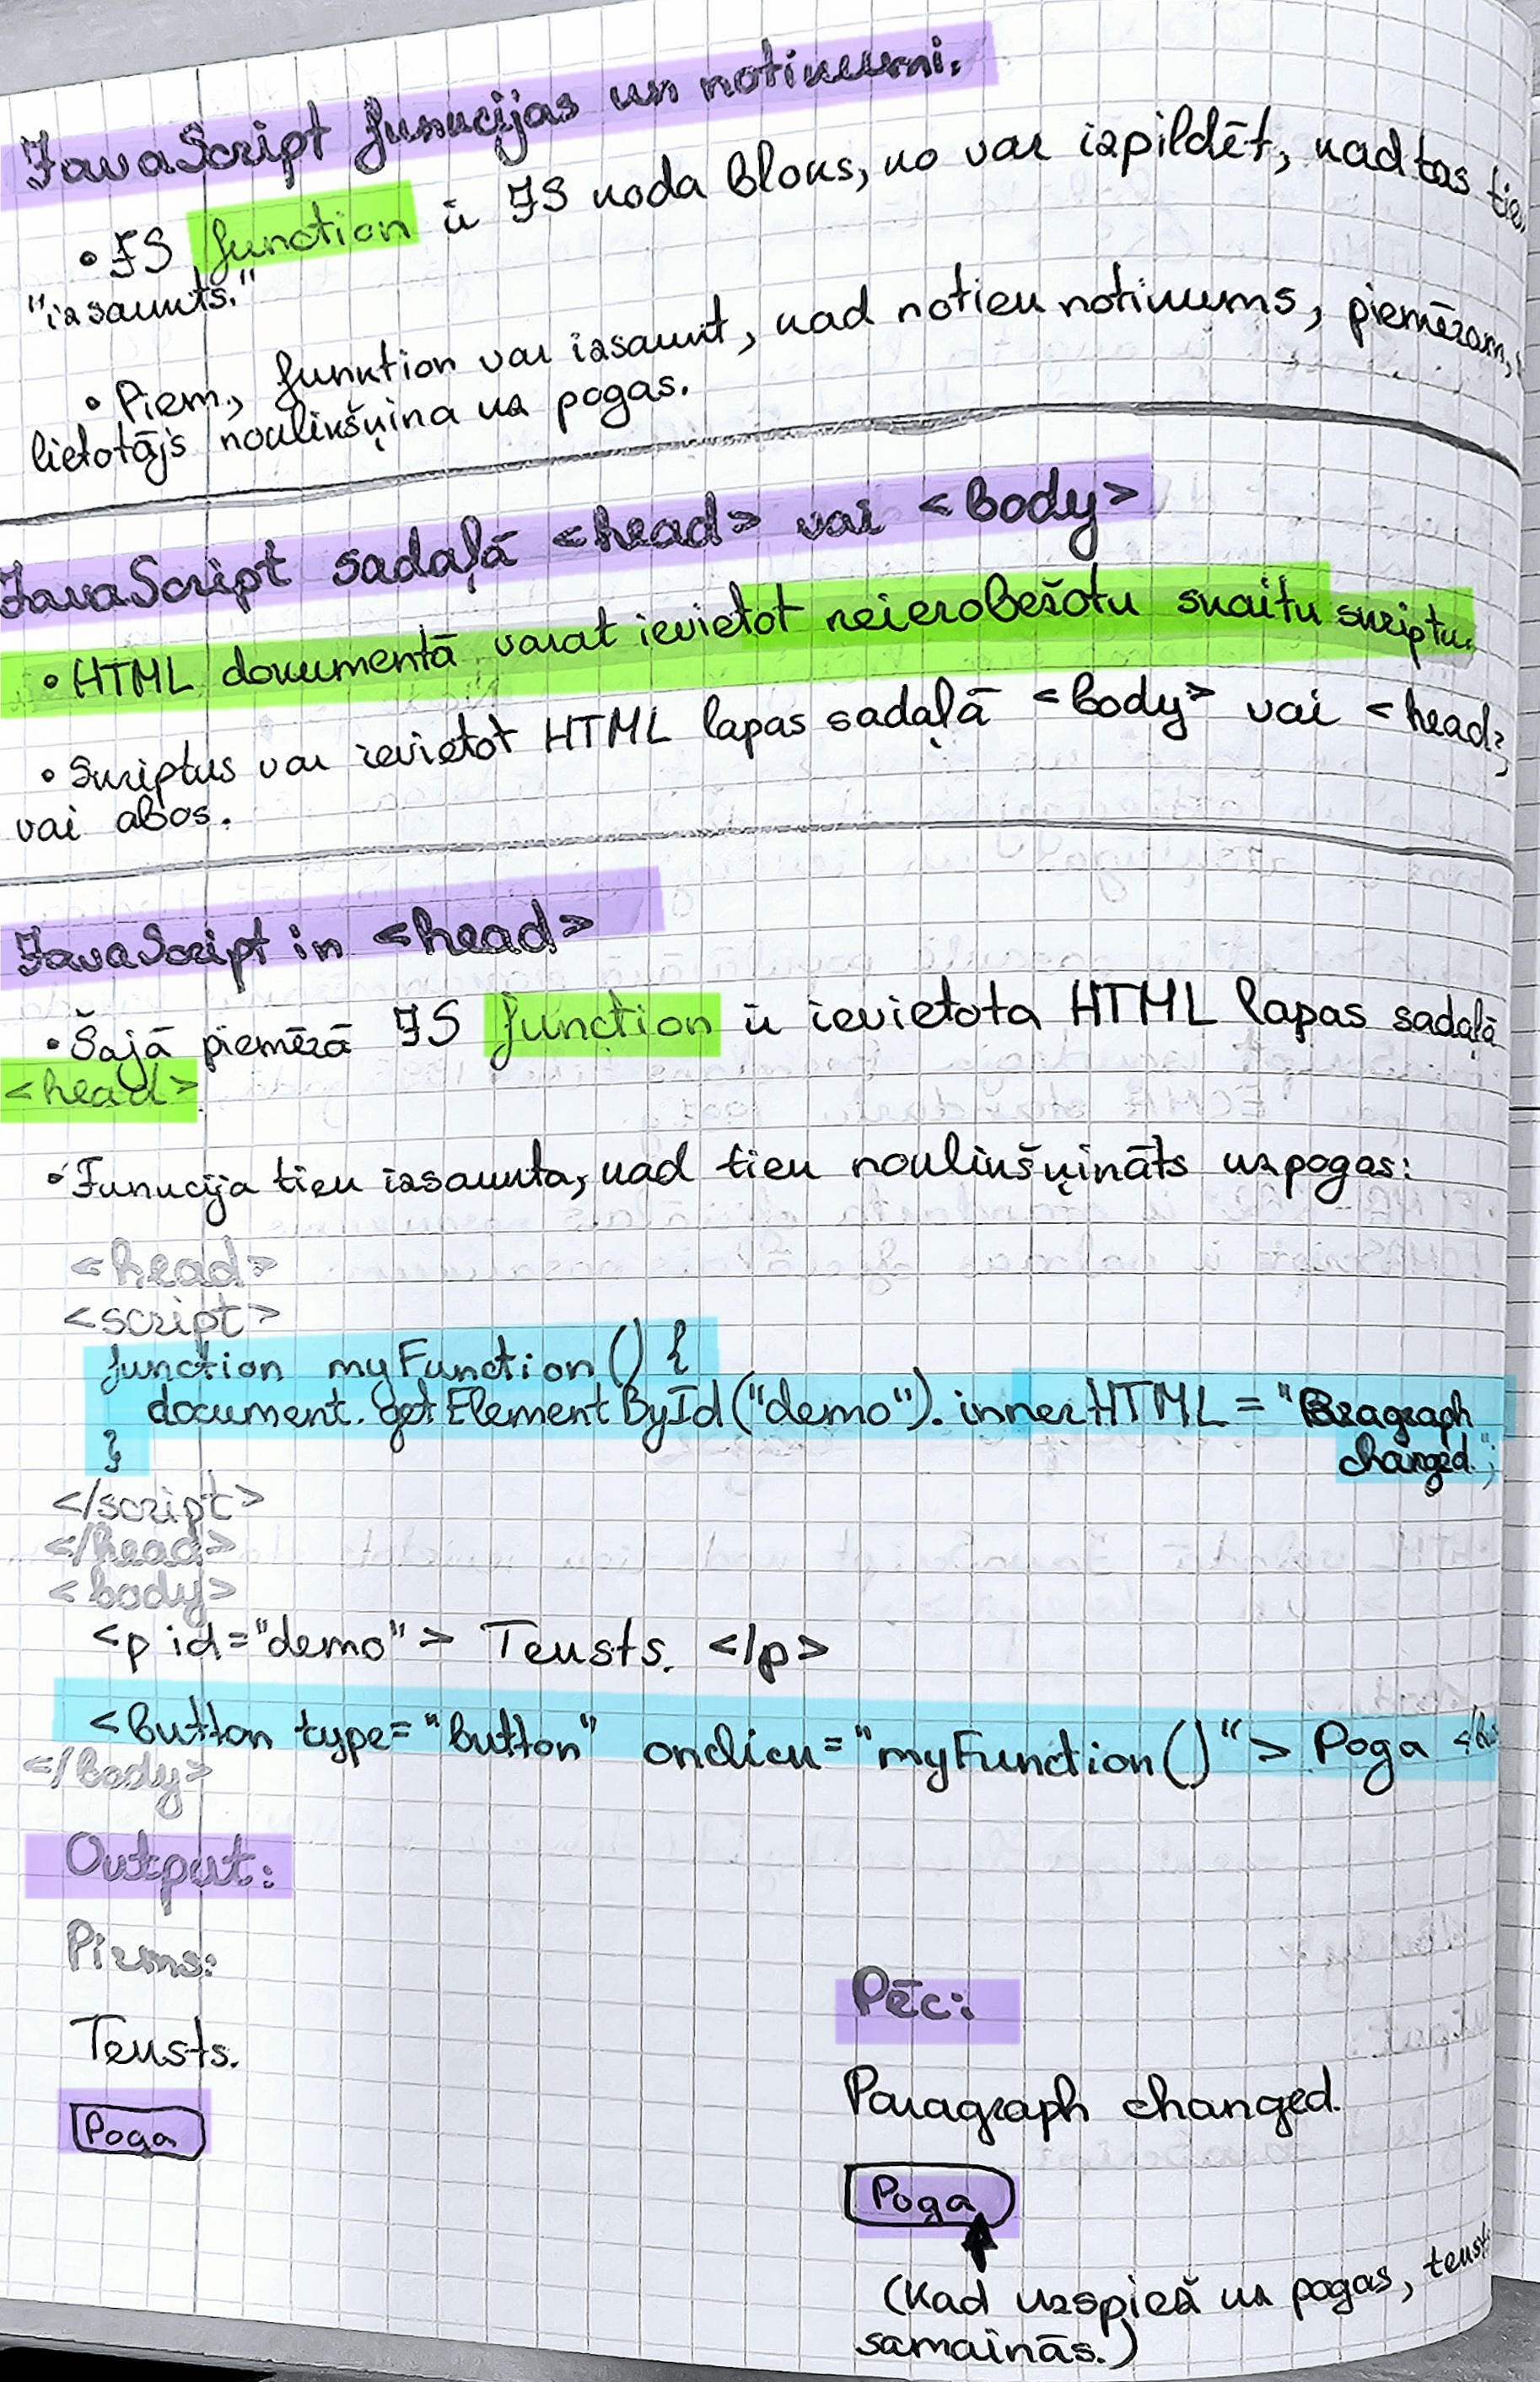 JavaScript funkcijas un notikumi.
• JS function ir JS koda bloks, ko var izpildīt, kad tas
"izsaukts."
• Piem., funktion var izsaukt, kad notiek notikums, piemēram,
lietotājs noklikšķina uz pogas.
JavaScript sadaļā <head> vai <body>
• HTML dokumentā varat ievietot neierobežotu skaitu skriptu.
• Skriptus var ievietot HTML lapas sadaļā <body> vai <head>,
vai abos.
JavaScript in <head>
• Šajā piemērā JS function ir ievietota HTML lapas sadaļā
<head>
• Funkcija tiek izsaukta, kad tiek noklikšķināts uz pogas:
<head>
<script>
function myFunction() {
document.getElementById("demo").innerHTML = "Paragraph
changed.";
}
</script>
</head>
<body>
<p id="demo"> Teksts. </p>
<button type="button" onclick="myFunction()"> Poga
</body>
Output:
Pirms:
Pēc:
Teksts.
Paragraph changed.
Poga
Poga
(Kad uzspiež uz pogas,
samainās.)